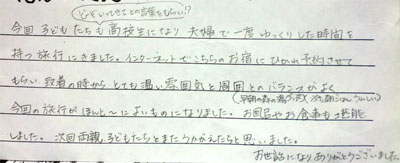 今回 子どもたちも高校生になり 夫婦で一度ゆっくりした時間を
持つ旅行にきました。インターネットでこちらのお宿にひかれ予約させて
もらい 到着の時から とても温い雰囲気と周囲とのバランスがよく
今回の旅行がほんと〜によいものになりました。お風呂やお食事も堪能
しました。次回両親、子どもたちとまたうかがえたらと思いました。
お世話になりありがとうございました